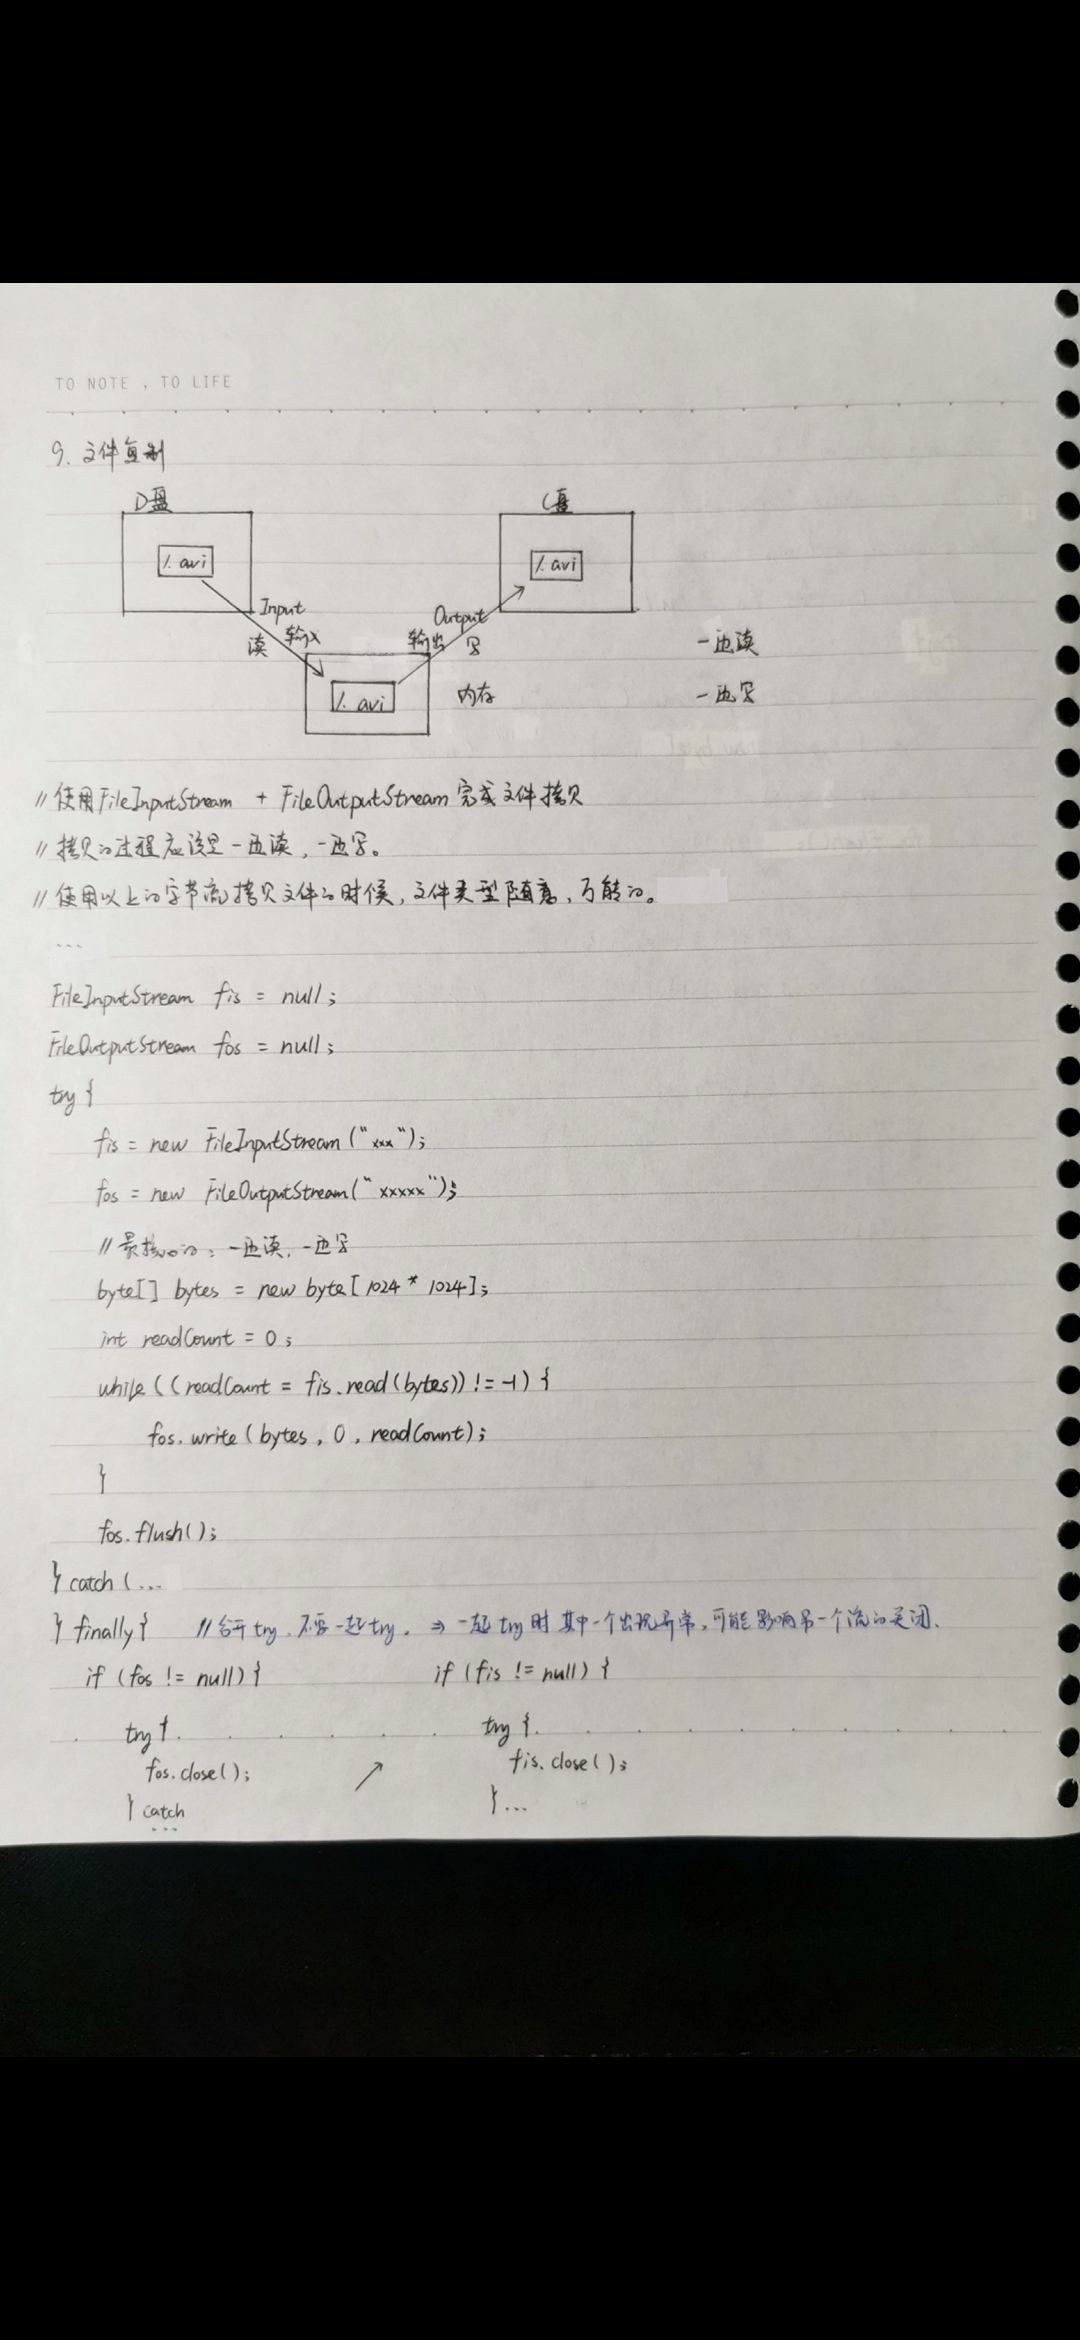 TO NOTE , TO LIFE
9. 文件复制
D盘 C盘
1. avi 1. avi
Input Output
读 输入 输出 写 一边读
1. avi 内存 一边写
// 使用FileInputStream + FileOutputStream 完成文件拷贝
// 拷贝的过程应该是一边读,一边写。
// 使用以上的字节流拷贝文件的时候,文件类型随意,万能的。
...
FileInputStream fis = null;
FileOutputStream fos = null;
try {
fis = new FileInputStream("xxx");
fos = new FileOutputStream("xxxxx");
// 最核心的:一边读,一边写
byte[] bytes = new byte[1024 * 1024];
int readCount = 0;
while ((readCount = fis.read(bytes)) != -1) {
fos.write(bytes, 0, readCount);
}
fos.flush();
} catch (...
} finally { // 分开try,不要一起try。⇒ 一起try时 其中一个出现异常,可能影响另一个流的关闭.
if (fos != null) { if (fis != null) {
try { try {
fos.close(); fis.close();
} catch }...
...